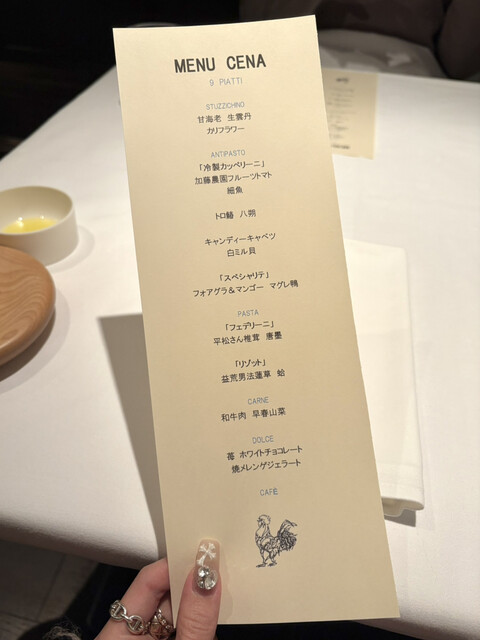 MENU CENA
9 PIATTI
STUZZICHINO
甘海老 生雲丹
カリフラワー
ANTIPASTO
「冷製カッペリーニ」
加藤農園フルーツトマト
細魚
トロ鰆 八朔
キャンディーキャベツ
白ミル貝
「スペシャリテ」
フォアグラ&マンゴー マグレ鴨
PASTA
「フェデリーニ」
平松さん椎茸 唐墨
「リゾット」
益荒男法蓮草 蛤
CARNE
和牛肉 早春山菜
DOLCE
苺 ホワイトチョコレート
焼メレンゲジェラート
CAFÉ